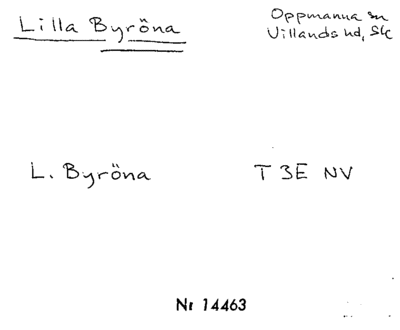 Lilla Byröna
Oppmanna sn
Villands hd, Sk
L. Byröna
T 3E NV
Nr 14463